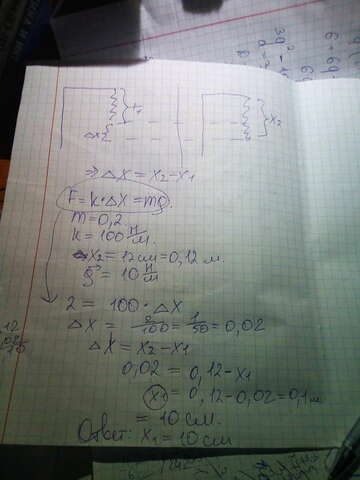 x₁
x₂
Δx
=> Δx = x₂-x₁
F = k·Δx = mg.
m=0,2
k=100 Н/м.
Δx₂=12см=0,12 м.
g = 10 Н/м
2 = 100·Δx
Δx = 2/100 = 1/50 = 0,02
Δx = x₂-x₁
0,02 = 0,12-x₁
x₁ = 0,12-0,02=0,1м
= 10 см.
Ответ: x₁=10см